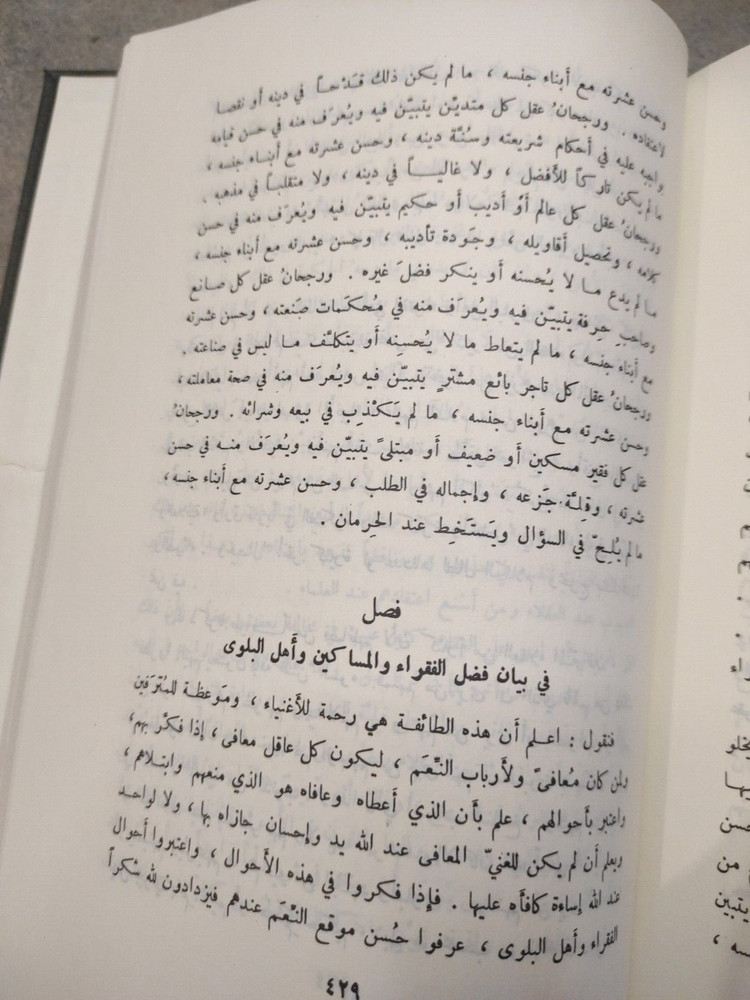 وحسن عشرته مع أبناء جنسه ، ما لم يكن ذلك قَدْحاً في دينه أو نقصا
لاعتقاده . ورجحانُ عقل كل متديّن يتبيّن فيه ويُعرَف منه في حسن قيامه
واجبه عليه في أحكام شريعته وسُنّة دينه ، وحسن عشرته مع أبناء جنسه ،
ما لم يكن تاركاً للأفضل ، ولا غالياً في دينه ، ولا متقلباً في مذهبه .
ورجحانُ عقل كل عالم أو أديب أو حكيم يتبيّن فيه ويُعرَف منه في حسن
كلامه ، وتحصيل أقاويله ، وجَودة تأديبه ، وحسن عشرته مع أبناء جنسه ،
ما لم يدع ما لا يُحسنه أو ينكر فضلَ غيره . ورجحانُ عقل كل صانع
وصاحبِ حِرفة يتبيّن فيه ويُعرَف منه في مُحكَمات صَنعته ، وحسن عشرته
مع أبناء جنسه ، ما لم يتعاط ما لا يُحسِنه أو يتكلّف ما ليس في صناعته .
ورجحانُ عقل كل تاجر بائع مشترٍ يتبيّن فيه ويُعرَف منه في صحة معاملته ،
وحسن عشرته مع أبناء جنسه ، ما لم يَكْذِب في بيعه وشرائه . ورجحانُ
عقل كل فقير مسكين أو ضعيف أو مبتلىً يتبيّن فيه ويُعرَف منه في حسن
عشرته ، وقِلّة جَزعه ، وإجماله في الطلب ، وحسن عشرته مع أبناء جنسه ،
ما لم يُلِحّ في السؤال ويَستَخِط عند الحِرمان .
فصل
في بيان فضل الفقراء والمساكين وأهل البلوى
فنقول : اعلم أن هذه الطائفة هي رحمة للأغنياء ، ومَوعظة للمُترَفين
ولمن كان مُعافىً ولأرباب النِّعَم ، ليكون كل عاقل معافى ، إذا فكّر بهم ،
واعتبر بأحوالهم ، علم بأن الذي أعطاه وعافاه هو الذي منعهم وابتلاهم ،
ويعلم أن لم يكن للغنيّ المعافى عند الله يد وإحسان جازاه بها ، ولا لواحد
عند الله إساءة كافأه عليها . فإذا فكروا في هذه الأحوال ، واعتبروا أحوال
الفقراء وأهل البلوى ، عرفوا حُسن موقع النِّعَم عندهم فيزدادون لله شكراً
٤٢٩